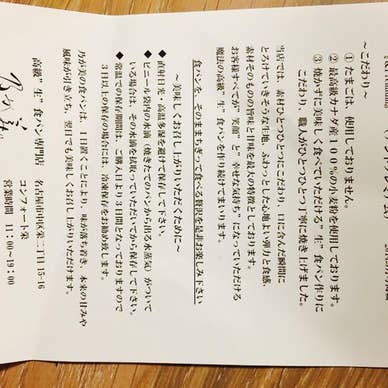 ～こだわり～
① たまごは、使用しておりません。
② 最高級カナダ産１００％の小麦粉を使用しております。
③ 焼かずに美味しく食べていただける“生”食パン作りに
こだわり、職人がひとつひとつ丁寧に焼き上げました。
当店では、素材ひとつひとつにこだわり、口に含んだ瞬間に
とろけていきそうな生地、ふわっとした心地よい弾力と食感、
素材そのものの旨味と甘味を最大の特徴としております。
お客様すべが“笑顔”と“幸せな気持ち”になっていただける
魔法の高級“生”食パンを作り続けてまいります。
食パンを、そのままちぎって食べる贅沢を是非お楽しみ下さい
～美味しくお召し上がりいただくために～
◆ 直射日光・高温多湿を避けて保存して下さい。
◆ ビニール袋内の水滴（焼きたてのパンから出る水蒸気）がついて
いる場合は、その水滴を拭取っていただいてから保存して下さい。
◆ 常温での保存期間は、ご購入日より3日間となっておりますので
3日以上の保存の場合には、冷凍保存をお勧め致します。
乃が美の食パンは、1日置くことにより、味が落ち着き、本来の甘みや
風味が引き立ち、翌日でも美味しくお召し上がりいただけます。
乃が美
高級“生”食パン専門店
名古屋市中区栄二丁目15-16
コンフォート栄
営業時間 11：00～19：00